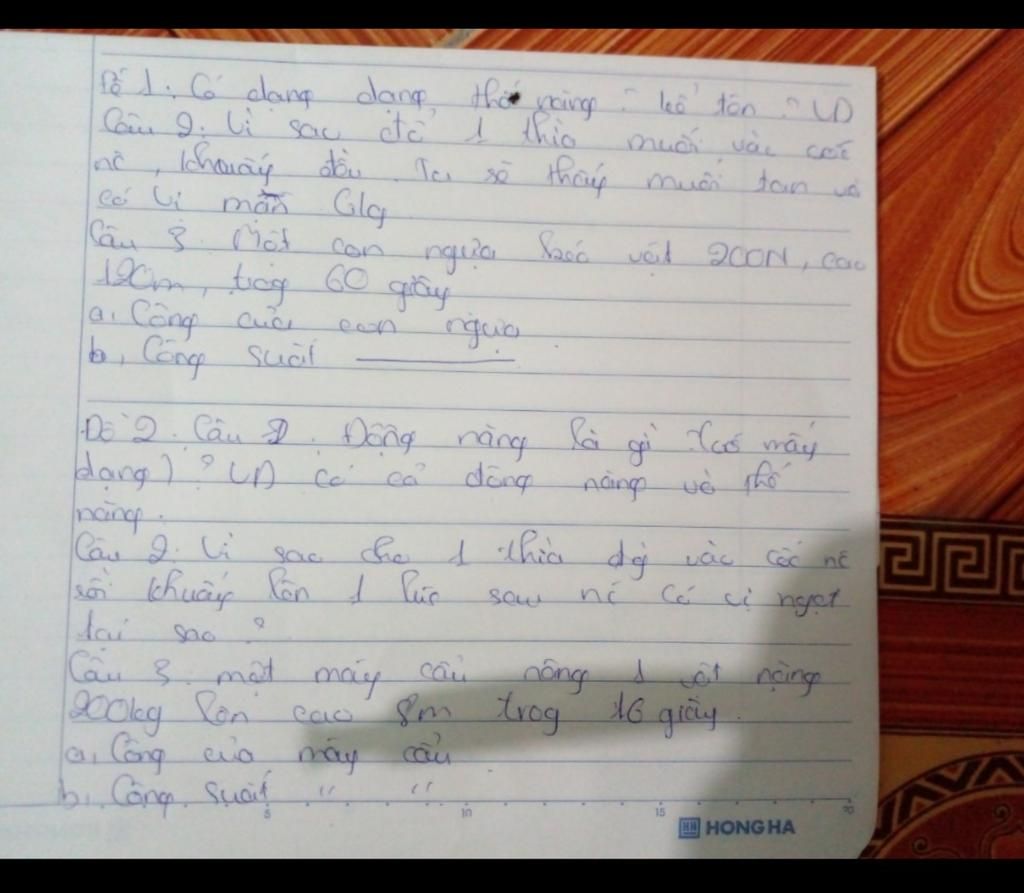 Đề 1. Có dạng dạng thế năng? kể tên? VD
Câu 2. Vì sao đổ 1 thìa muối vào cốc
nc, khuấy đều. Ta sẽ thấy muối tan và
có vị mặn
Câu 3. Một con ngựa kéo vật 200N, cao
120m, trog 60 giây
a, Công của con ngựa
b, Công suất
Đề 2. Câu 1. Động năng là gì (có mấy
dạng)? VD có cả động năng và thế
năng.
Câu 2. Vì sao cho 1 thìa đg vào cốc nc
rồi khuấy lên 1 lúc sau nc có vị ngọt
tại sao?
Câu 3. một máy cẩu nâng 1 vật nặng
200kg lên cao 8m trog 16 giây.
a, Công của máy cẩu
b, Công suất " "
5 10 15 20
HH HONG HA